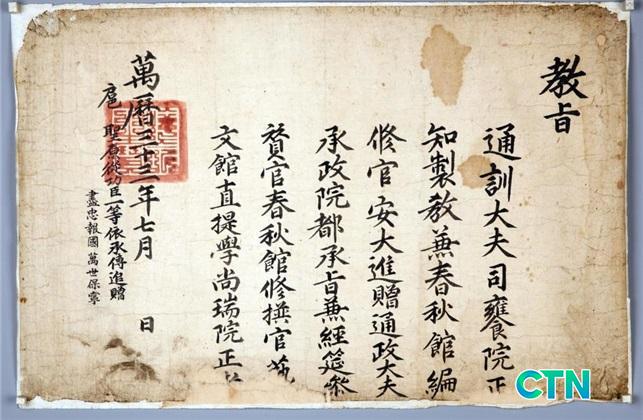 教旨
通訓大夫司饔院正
知製教兼春秋館編
修官安大進贈通政大夫
承政院都承旨兼經筵參
贊官春秋館修撰官藝
文館直提學尚瑞院正
萬曆三十三年七月 日
扈聖原從功臣一等依承傳追贈
盡忠報國萬世保寧
CTN